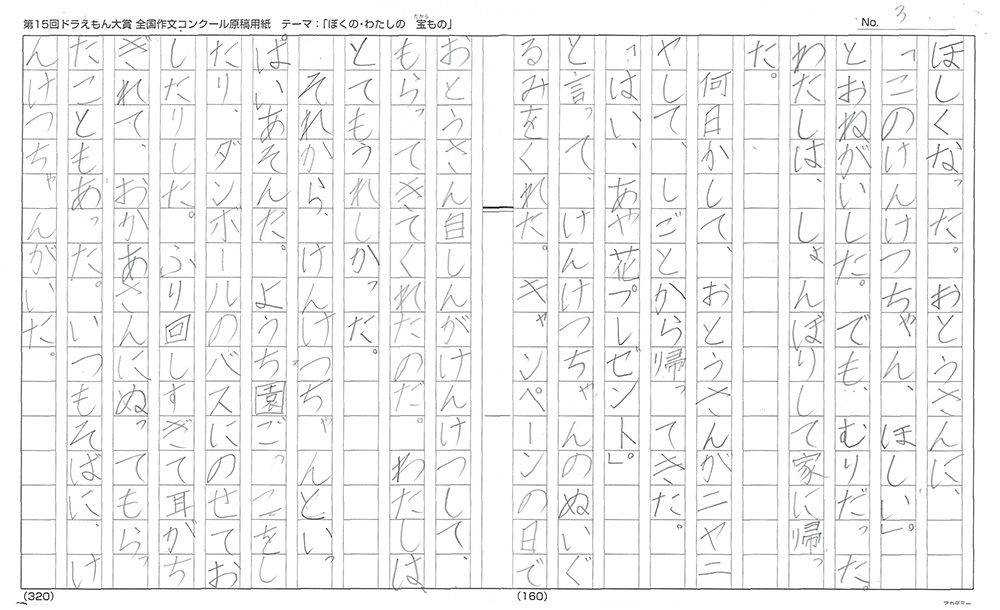 第15回ドラえもん大賞 全国作文コンクール原稿用紙　テーマ：「ぼくの・わたしの　宝もの」
たから
No. 3
ほしくなった。おとうさんに、
「このけんけつちゃん、ほしい」。
とおねがいした。でも、むりだった。
わたしは、しょんぼりして家に帰っ
た。
何日かして、おとうさんがニヤニ
ヤして、しごとから帰ってきた。
「はい、あや花プレゼント」。
と言って、けんけつちゃんのぬいぐ
るみをくれた。キャンペーンの日で
おとうさん自しんがけんけつして、
もらってきてくれたのだ。わたしは
とてもうれしかった。
それから、けんけつちゃんといっ
ぱいあそんだ。ようち園ごっこをし
たり、ダンボールのバスにのせてお
したりした。ふり回しすぎて耳がち
ぎれて、おかあさんにぬってもらっ
たこともあった。いつもそばに、け
んけつちゃんがいた。
(320)
(160)